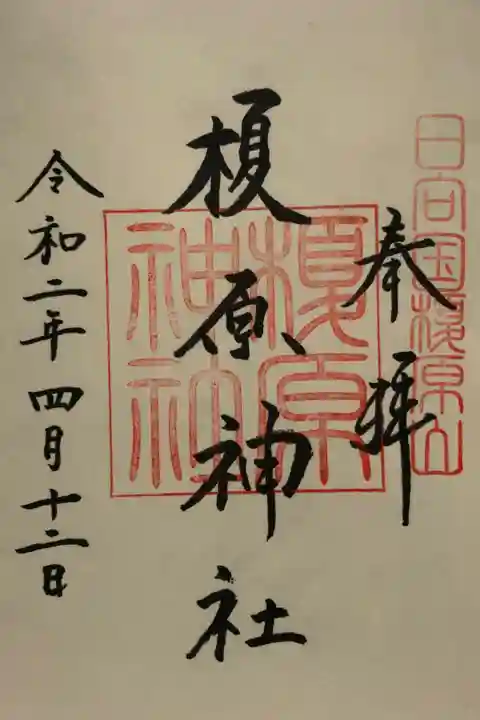 日向国榎原山
奉拝
榎原神社
榎原
神社
令和二年四月十二日